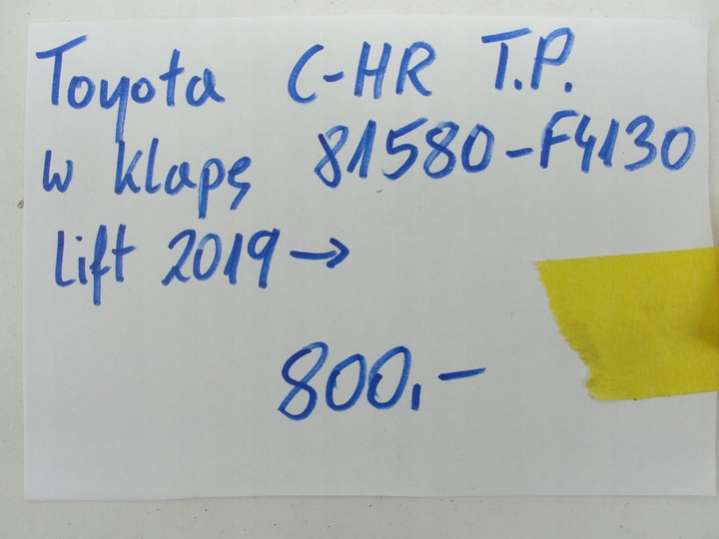 Toyota C-HR T.P.
w klapę 81580-F4130
Lift 2019→
800,-